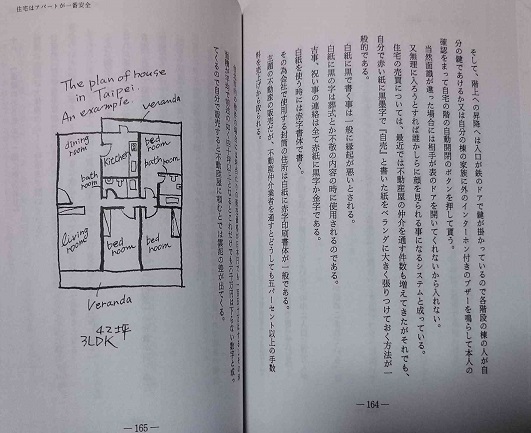 そして、階上への階段へは入口が鉄のドアで鍵が掛かっているので各階段の棟の人が自
分の鍵であけるか又は自分の棟の家族に外のインターホン付きのブザーを鳴らして本人の
確認をまって自宅の階の自動開閉のボタンを押して貰う。
当然面識が違った場合には相手が表のドアを開いてくれないから入れない。
又無理に入ろうとすれば誰かしらに顔を見られる事になるシステムと成っている。
住宅の売買については、最近では不動産屋の仲介を通す件数も増えてきたがそれでも、
自分で赤い紙に黒墨字で『自売』と書いた紙をベランダに大きく張りつけておく方法が一
般的である。
白紙に黒で書く事は一般に縁起が悪いとされる。
白紙に黒の字は葬式とか不敬の内容の時に使用されるのである。
吉事、祝い事の連絡は全て赤紙に黒字か金字である。
白紙を使う時には赤字書体で書く。
その為会社で使用する封筒の住所は白紙に赤字印刷書体が一般である。
不動産の販売だが、不動産仲介業者を通すとどうしても五パーセント以上の手数
料を売上げから取られる。
—164—
住宅はアパートが一番安全
てくるので自分で販売すると不動産屋に頼むとでは雲泥の差が出てくる。
The plan of house
in Taipei.
An example.
veranda
dining
room
kitchen
bed
room
bath
room
bath
room
living
room
bed
room
bed
room
Veranda
42坪
3LDK
—165—